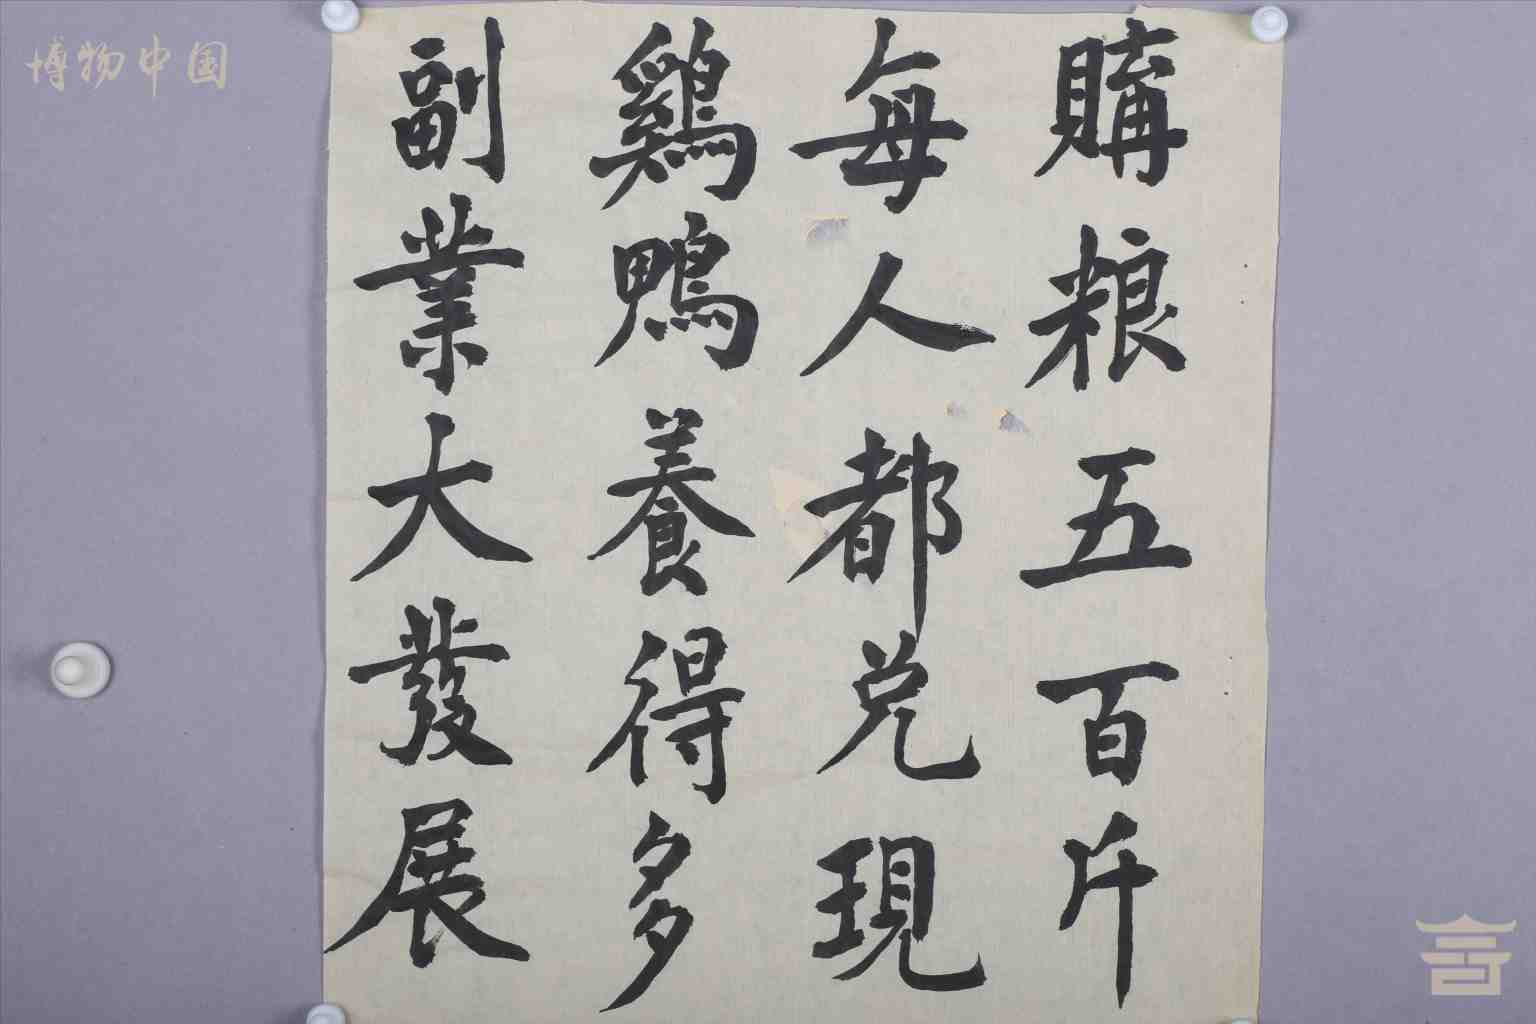 購粮五百斤
每人都兑現
鷄鴨養得多
副業大發展
博物中国